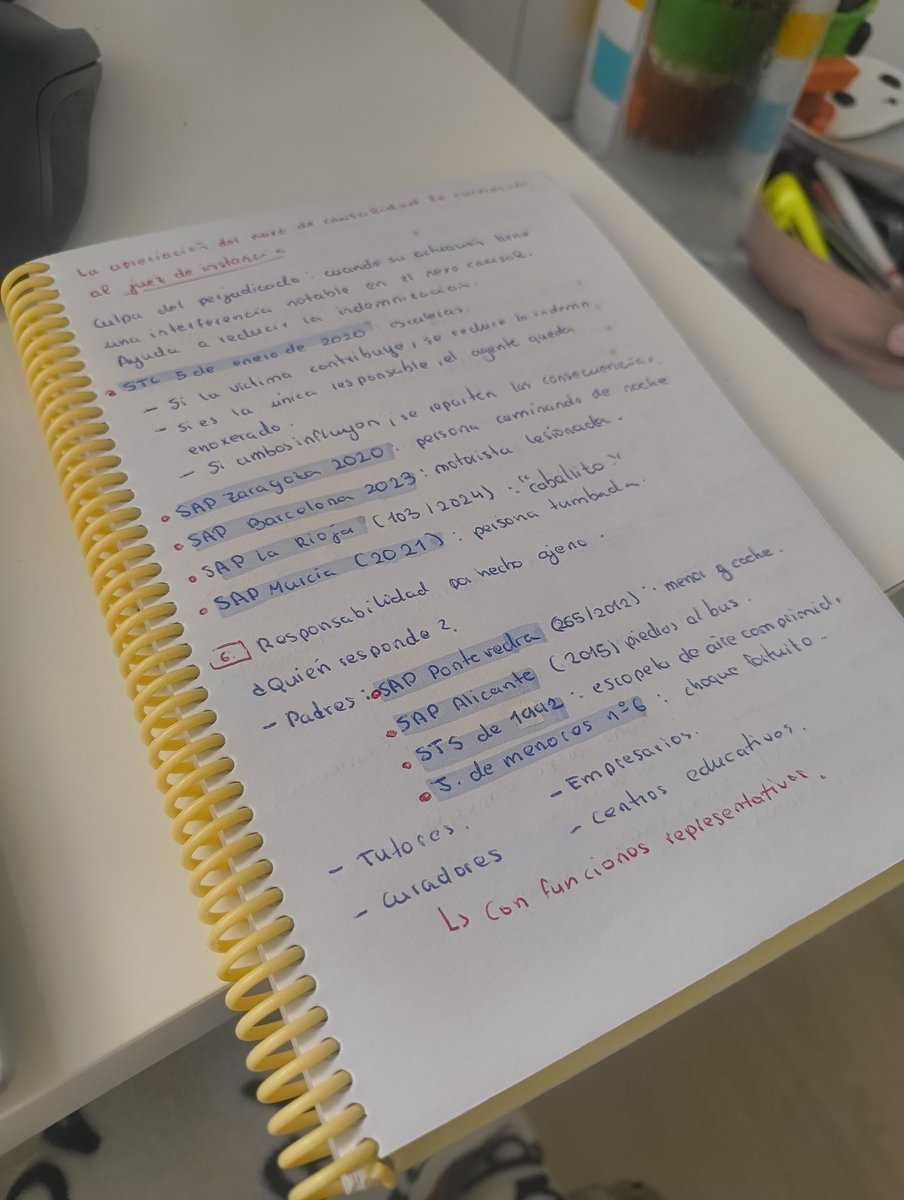 La apreciación del nexo de causalidad le corresponde
al juez de instancia
Culpa del perjudicado: cuando su actuación tiene
una interferencia notable en el nexo causal.
Ayuda a reducir la indemnización.
• STC 5 de enero de 2020: escaleras.
- Si la víctima contribuye, se reduce la indemn.
- Si es la única responsable, el agente queda
enoxerado.
- Si ambos influyen, se reparten las consecuencias.
• SAP Zaragoza 2020: persona caminando de noche
• SAP Barcelona 2023: motorista lesionada.
• SAP La Rioja (103/2024): "caballito".
• SAP Murcia (2021): persona tumbada.
6. Responsabilidad por hecho ajeno.
¿Quién responde?
- Padres: • SAP Pontevedra (265/2012): menor y coche.
• SAP Alicante (2015) piedras al bus.
• STS de 1992: escopeta de aire comprimid.
• J. de menores nº6: choque fortuito.
- Tutores. - Empresarios.
- Curadores - Centros educativos.
↳ Con funciones representativas.